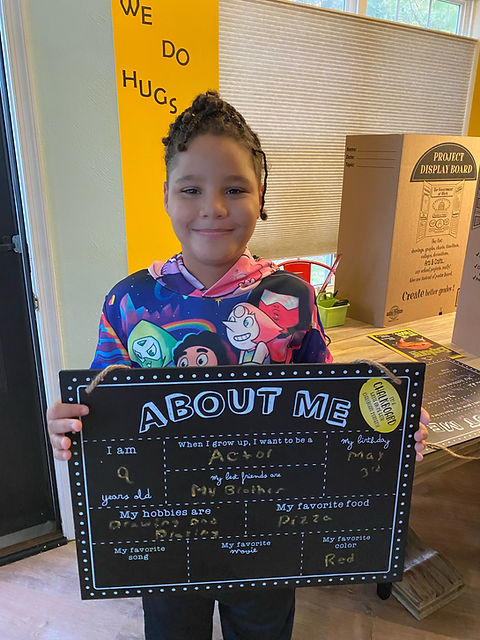 WE
DO
HUGS
PROJECT
DISPLAY BOARD
Arts & Crafts...
Create better grades!
ABOUT ME
CHALKBOARD
I am
9
years old
When I grow up, I want to be a
Actor
My best friends are
My Brother
My birthday
May
3rd
My hobbies are
Drawing and
Playing
My favorite food
Pizza
My favorite
song
My favorite
movie
My favorite
color
Red